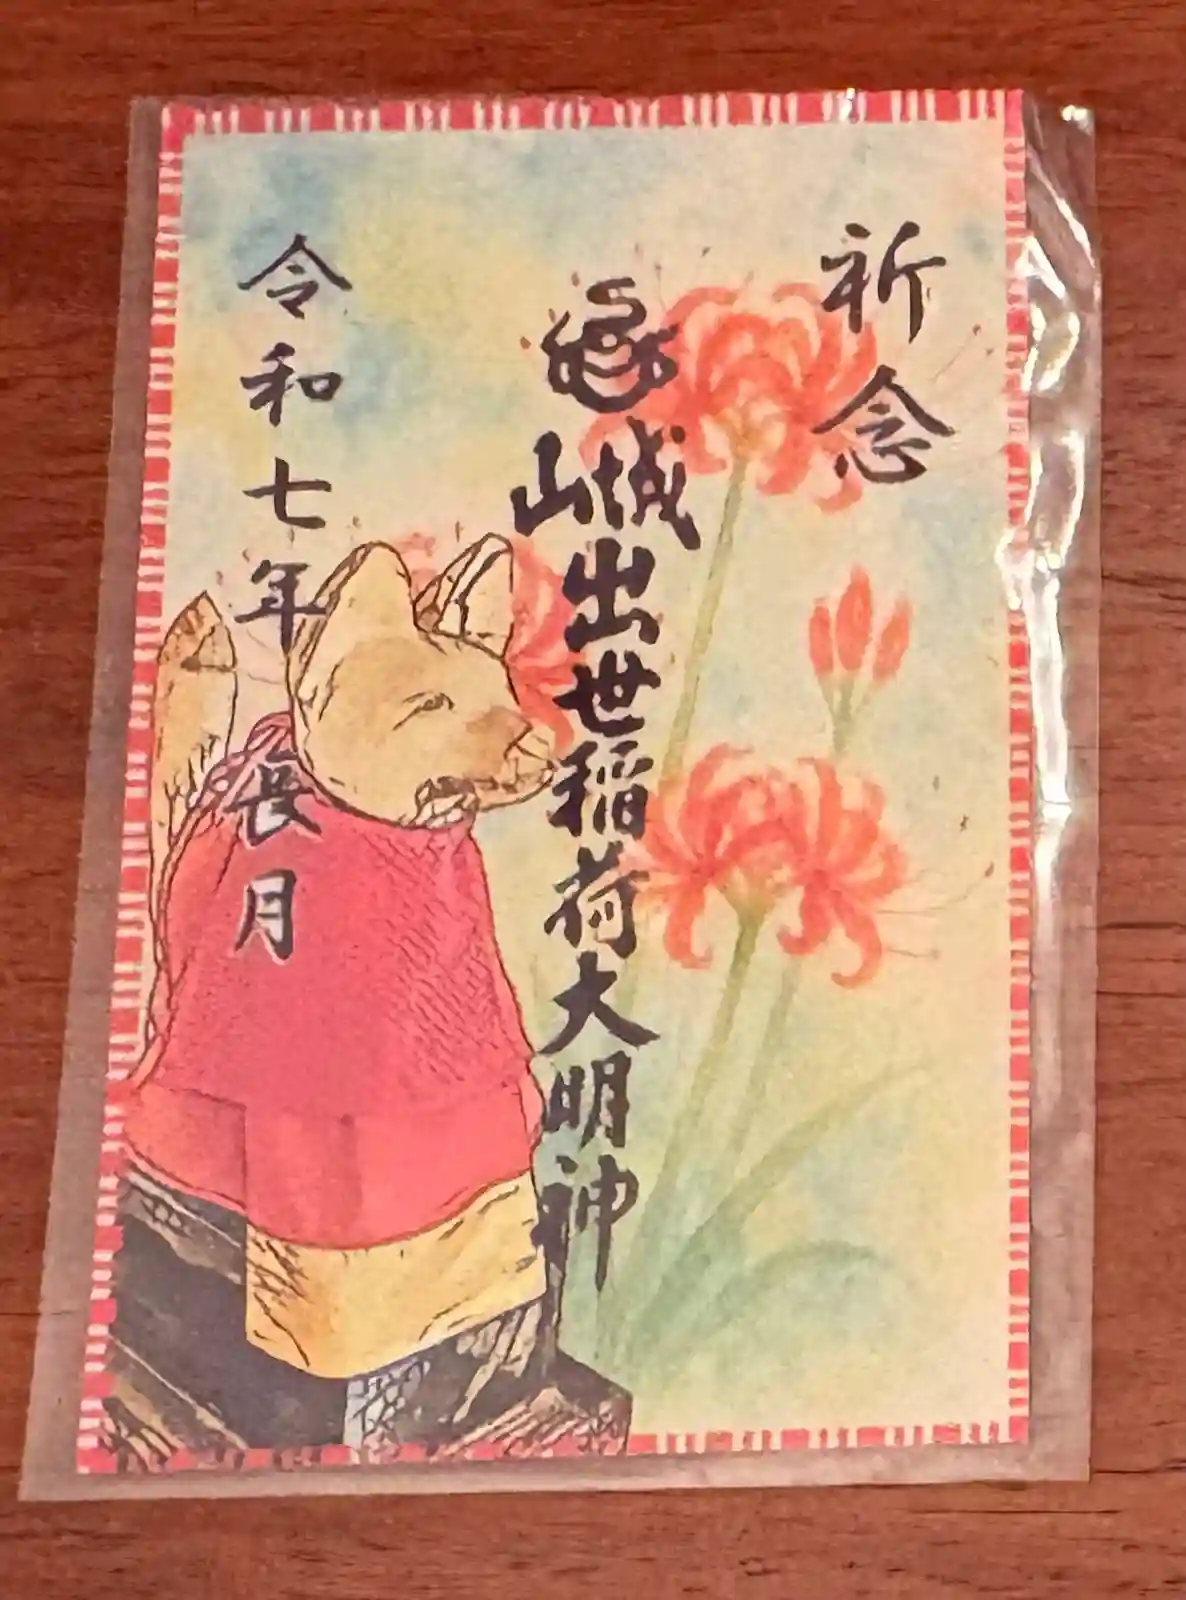 祈念
城山出世稲荷大明神
令和七年長月